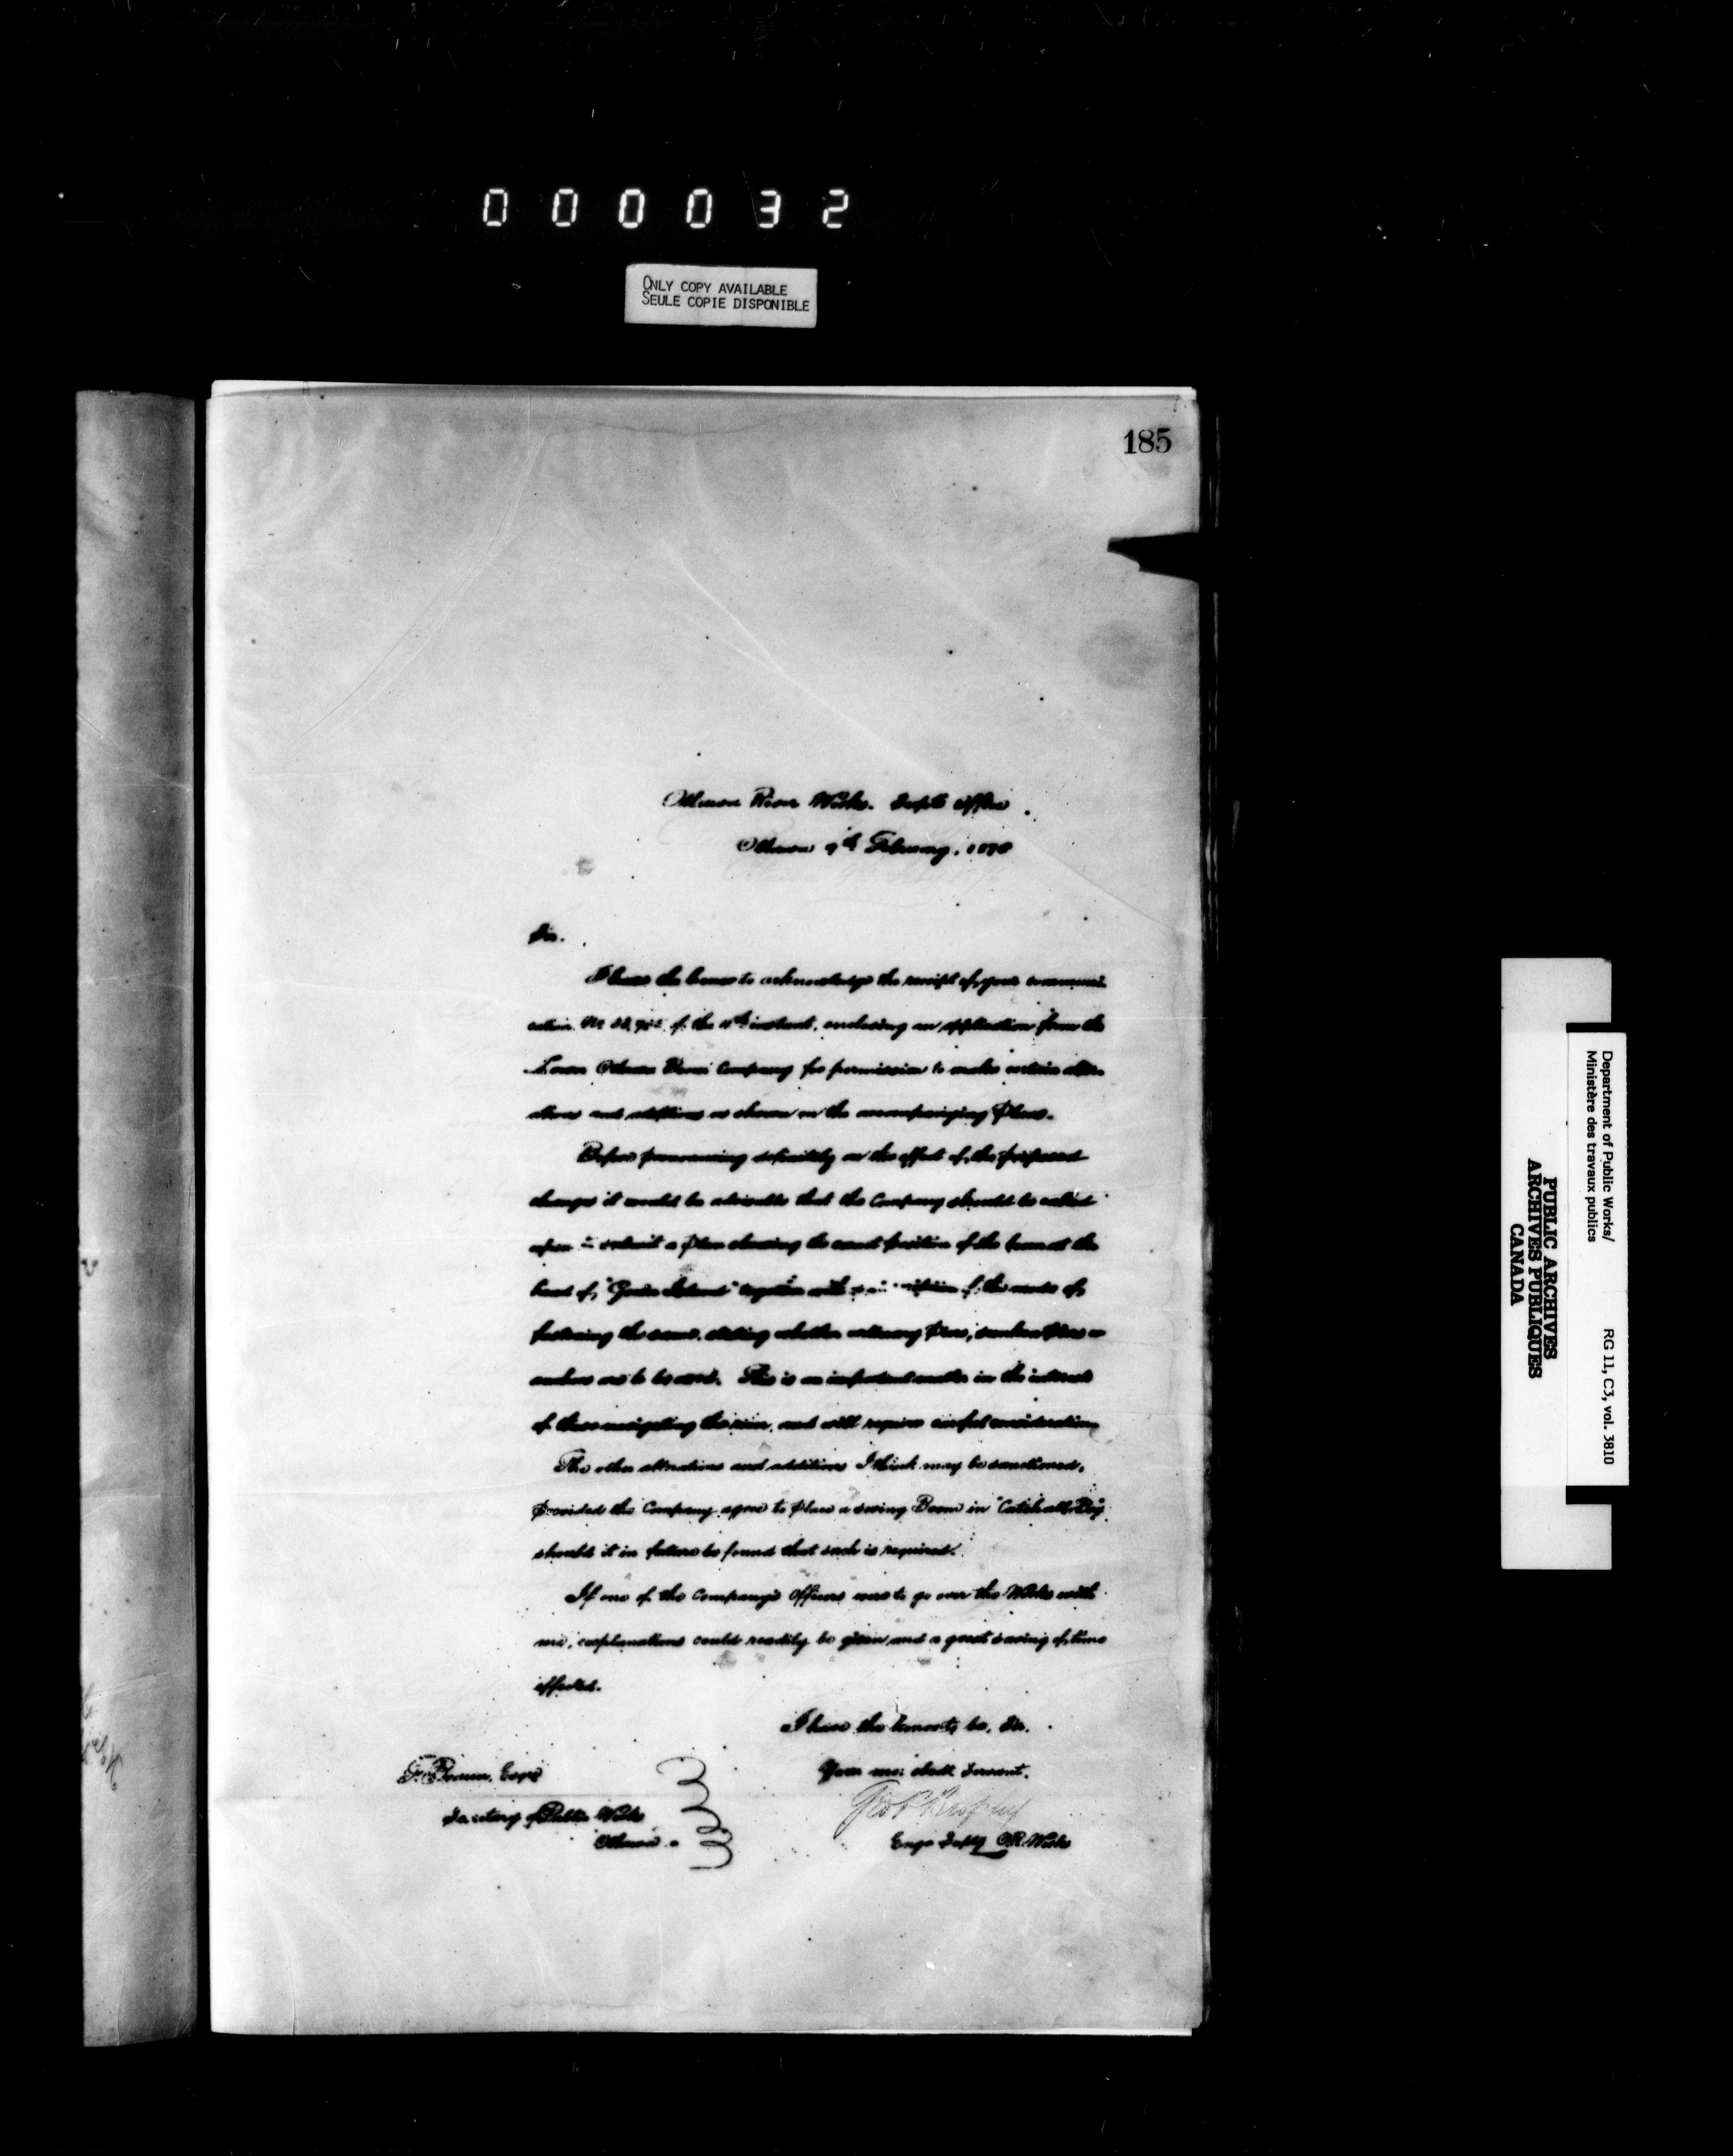 000032
ONLY COPY AVAILABLE
SEULE COPIE DISPONIBLE
185
Ottawa River Works. Supt's Office
Ottawa 9th February, 187
Sir.
I have the honor to acknowledge the receipt of your communi-
cation No of the 4th instant, enclosing an application from the
Lower Ottawa Boom Company for permission to make certain alter-
ations and additions as shown on the accompanying Plans.
Before pronouncing definitely on the effect of the proposed
changes it would be advisable that the Company should be called
upon to submit a Plan showing the exact position of the boom at the
head of Island" together with a of the mode of
fastening the same, stating whether ordinary Piers, sunken Piers or
anchors are to be used. This is an important matter in the interest
of those navigating the river, and will require careful consideration
The other alterations and additions I think may be sanctioned,
provided the Company agree to place a swing Boom in Bay"
should it in future be found that such is required.
If one of the Company's Officers were to go over the Works with
me, explanations could readily be given and a great saving of time
effected.
I have the honor to be, Sir.
Your mo: obedt Servant.
F. Braun, Esqre
Secretary of Public Works
Ottawa
Geo P Brophy
Engr Supt O.R. Works
Department of Public Works/
Ministère des travaux publics
RG 11, C3, vol. 3810
PUBLIC ARCHIVES
ARCHIVES PUBLIQUES
CANADA